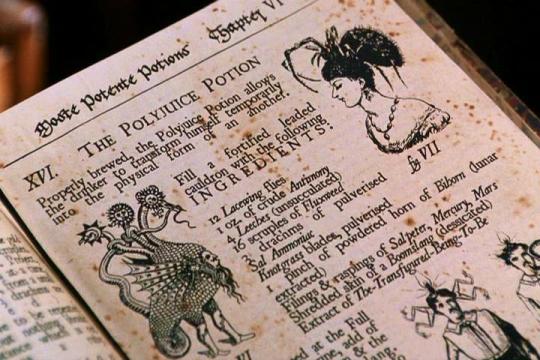 Moste Potente Potions Chapter VI
XVI. THE POLYJUICE POTION
Properly brewed the Polyjuice Potion allows
the drinker to transform himself temporarily
into the physical form of an another.
Fill a fortified leaded
cauldron with the following
INGREDIENTS:
fig VII
12 Lacewing flies
1 oz of Crude Antimony
4 Leeches (unsucculated)
16 scruples of Fluxweed
3 drachms of pulverised
Sal Ammoniac
Knotgrass blades, pulverised
1 pinch of powdered horn of Bihorn (lunar
extracted)
Filings & raspings of Saltpeter, Mercury, Mars
Shredded skin of a Boomslang (dessicated)
Extract of The-Transfigured-Being-To-Be
at the Full
add of
& the